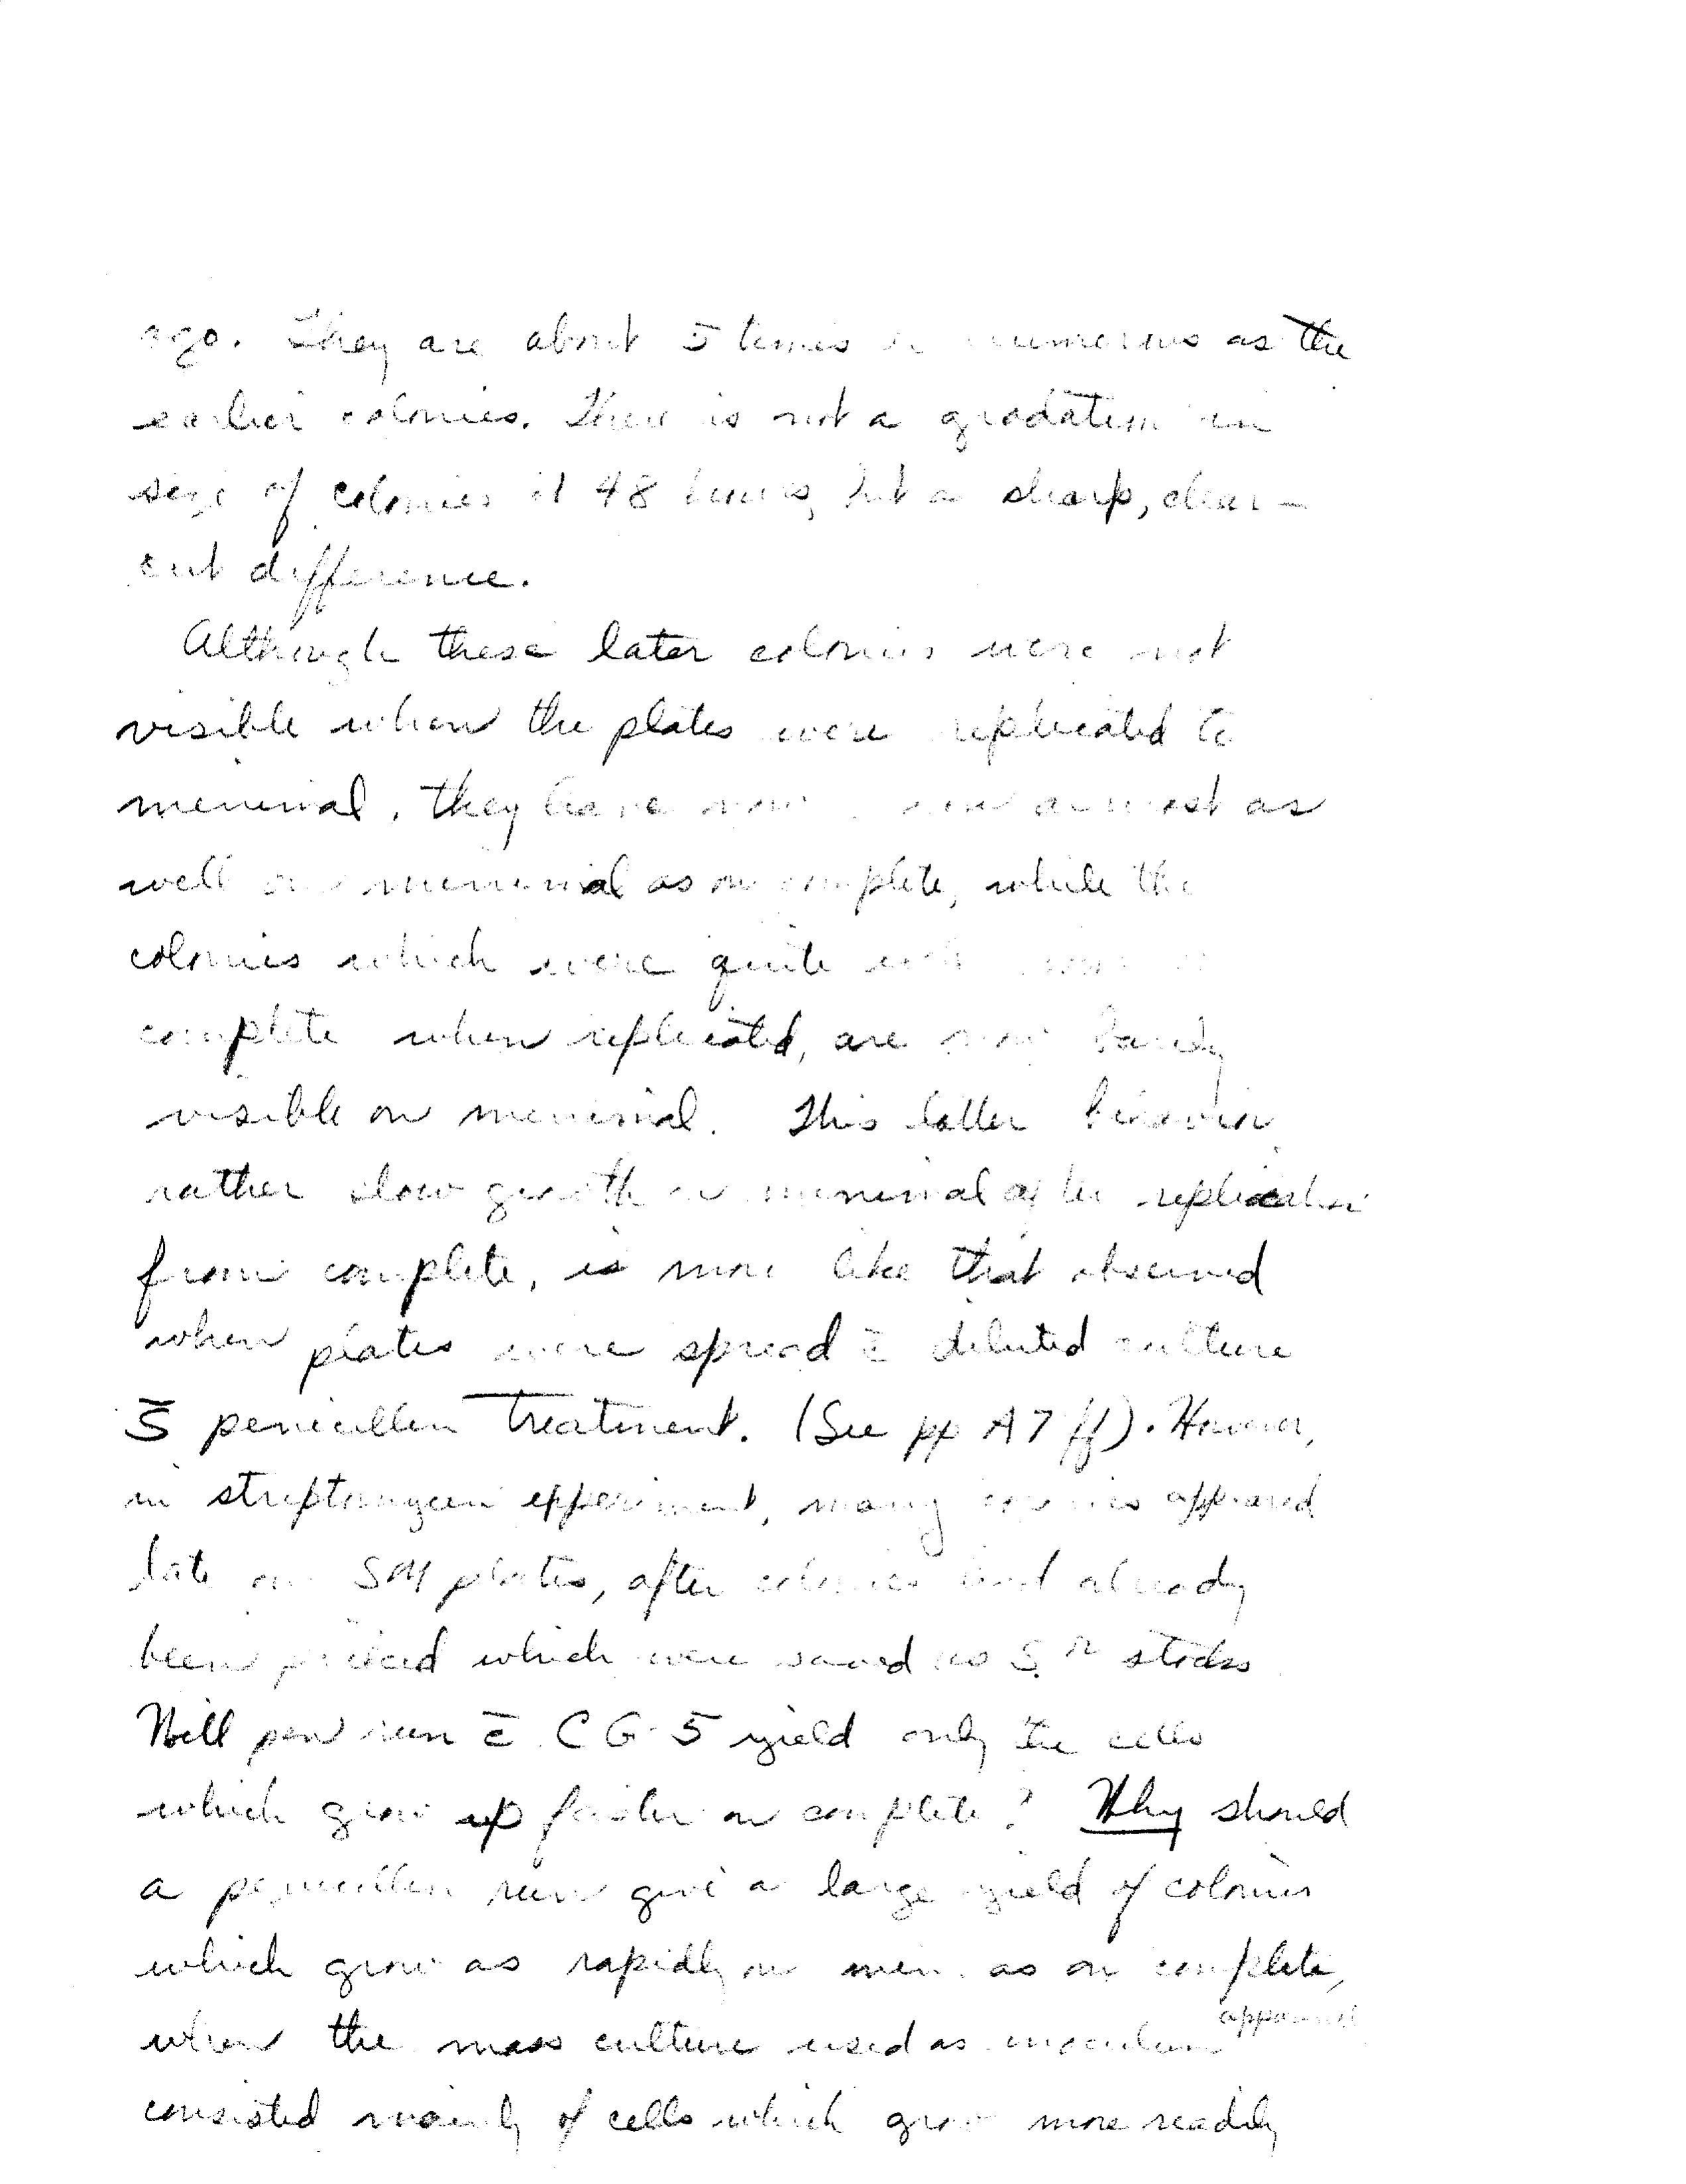 ago. They are about 5 times as numerous as the
earlier colonies. There is not a gradation in
size of colonies at 48 hours, but a sharp, clear-
cut difference.
Although these later colonies were not
visible when the plates were replicated to
minimal, they have now almost as
well on minimal as on complete, while the
colonies which were quite
complete when replicated, are now barely
visible on minimal. This latter behavior,
rather slow growth on minimal after replication
from complete, is more like that observed
when plates were spread c̄ diluted culture
s̄ penicillin treatment. (See pp A7 ff). However,
in streptomycin experiment, many colonies appeared
late on SM plates, after colonies had already
been picked which were saved as Sʳ stocks
Will pen run c̄ CG-5 yield only the cells
which grow up faster on complete? Why should
a penicillin run give a large yield of colonies
which grow as rapidly on min. as on complete,
when the mass culture used as inoculum apparently
consisted mainly of cells which grow more readily